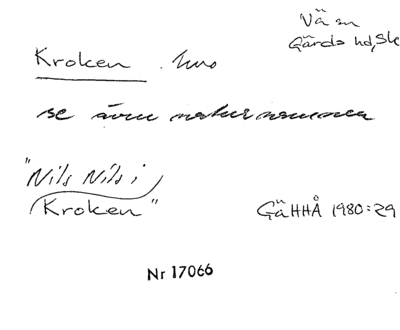 Vä sn
Gärds hd, Sk
Kroken . hus
se även naturnamnen
"Nils Nils i
Kroken"
GäHHÅ 1980:29
Nr 17066